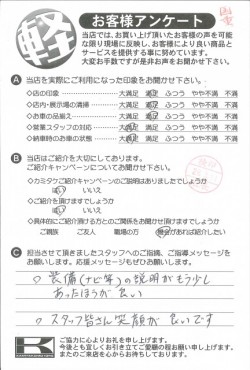 軽
お客様アンケート
当店では、お買い上げ頂いたお客様の声を可能
な限り現場に反映し、お客様により良い商品と
サービスを提供する車に努めています。
大変お手数ですが是非お声をお聞かせ下さい。
A 当店を実際にご利用になった印象をお聞かせ下さい。
◇店の印象 大満足 満足 ふつう やや不満 不満
◇店内・展示場の清掃 大満足 満足 ふつう やや不満 不満
◇お車の品揃え 大満足 満足 ふつう やや不満 不満
◇営業スタッフの対応 大満足 満足 ふつう やや不満 不満
◇納車時のお車の状態 大満足 満足 ふつう やや不満 不満
B 当店はご紹介を大切にしております。
ご紹介キャンペーンについてお聞かせ下さい。
◇カミタケご紹介キャンペーンのご説明はありましたでしょうか
はい いいえ
◇ご紹介を頂けますでしょうか
はい いいえ
◇具体的にご紹介頂ける方とのご関係をお聞かせ頂けますでしょうか
ご親族 ご友人 職場の方 機会があれば紹介したい
C 担当させて頂きましたスタッフへのご指摘、ご指導メッセージを
お願いします。応援メッセージもぜひお願いします。
○ 装備(ナビ等)の説明がもう少し
あったほうが良い
○ スタッフ皆さん笑顔が良いです
K
ご協力に心よりお礼を申し上げます。
今後とも宜しくお引き立てご愛顧の程お願い申し上げます。
またのご来店を心からお待ちしております。